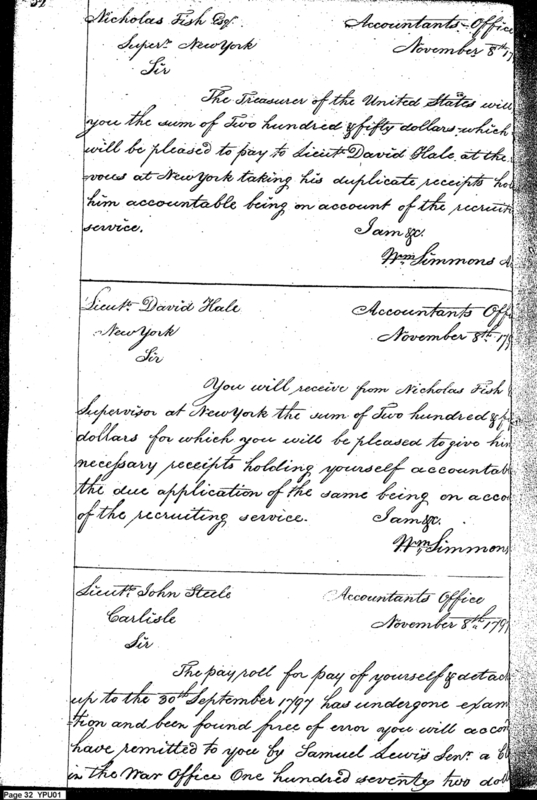 32
Nicholas Fish Esqr. Accountants Office
Superr. New York November 8th 17
Sir
The Treasurer of the United States will
you the sum of Two hundred & fifty dollars which
will be pleased to pay to Lieutt. David Hale at the
=vous at New York taking his duplicate receipts ho
him accountable being on account of the recruit
service. I am &c.
Wm Simmons A
Lieutt. David Hale Accountants Offi
New York November 8th. 179
Sir
You will receive from Nicholas Fish
Supervisor at New York the sum of Two hundred & fi
dollars for which you will be pleased to give him
necessary receipts holding yourself accountab
the due application of the same being on acco
of the recruiting service. I am &c.
Wm Simmons
Lieutt. John Steele Accountants Office
Carlisle November 8th. 1797
Sir
The pay roll for pay of yourself & detach
up to the 30th September 1797 has undergone exam
=tion and been found free of error you will accor
have remitted to you by Samuel Lewis Senr. a Cl
in the War Office One hundred seventy two doll
Page 32 YPU01